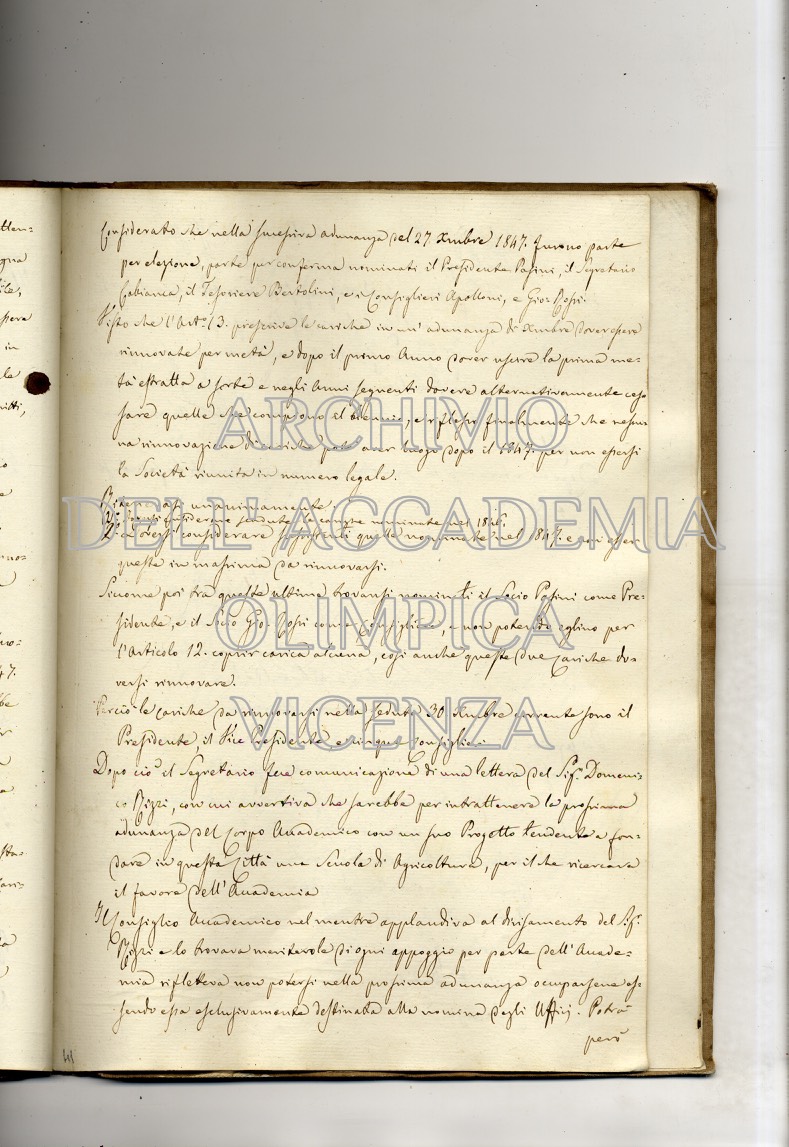 Considerato che nella successiva adunanza del 27 Xmbre 1847. furono parte
per elezione, parte per conferma nominati il Presidente Pasini, il Segretario
Cabianca, il Tesoriere Bertolini, e i Consiglieri Apolloni, e Gio: Rossi.
Visto che l'Art.o 13. prescrive le cariche in un' adunanza di Xmbre dover essere
rinnovate per metà, e dopo il primo Anno dover uscire la prima me-
tà estratta a sorte e negli Anni seguenti dovere alternativamente ces-
sare quelle che compiono il biennio, e riflesso finalmente che nessu-
na rinnovazione di cariche potè aver luogo dopo il 1847. per non essersi
la Società riunita in numero legale.
unanimamente
considerare scadute le cariche nominate nel 1846.
2.o doversi considerare quelle nominate nel 1847. e non esser
queste in massima da rinnovarsi.
Siccome poi tra queste ultime trovansi nominati il Socio Pasini come Pre-
sidente, e il Socio Gio: Rossi come Consigliere, e non potendo eglino per
l'Articolo 12. coprir carica alcuna, così anche queste due Cariche do-
versi rinnovare.
Perciò le Cariche da rinnovarsi nella seduta 30 Xmbre corrente sono il
Presidente, il Vice Presidente e cinque Consiglieri
Dopo ciò il Segretario fece comunicazione di una lettera del Sig.r Domeni-
co Rizzi, con cui avvertiva che sarebbe per intrattenere la prossima
adunanza del Corpo Accademico con un suo Progetto tendente a fon-
dare in questa Città una Scuola di Agricoltura, per il che ricercava
il favore dell'Accademia
Il Consiglio Accademico nel mentre applaudiva al divisamento del Sig.r
Rizzi e lo trovava meritevole di ogni appoggio per parte dell'Accade-
mia rifletteva non potersi nella prossima adunanza occuparsene es-
sendo essa esclusivamente destinata alla nomina degli Uffizj. Potrà
però
ARCHIVIO
DELL'ACCADEMIA
OLIMPICA
VICENZA